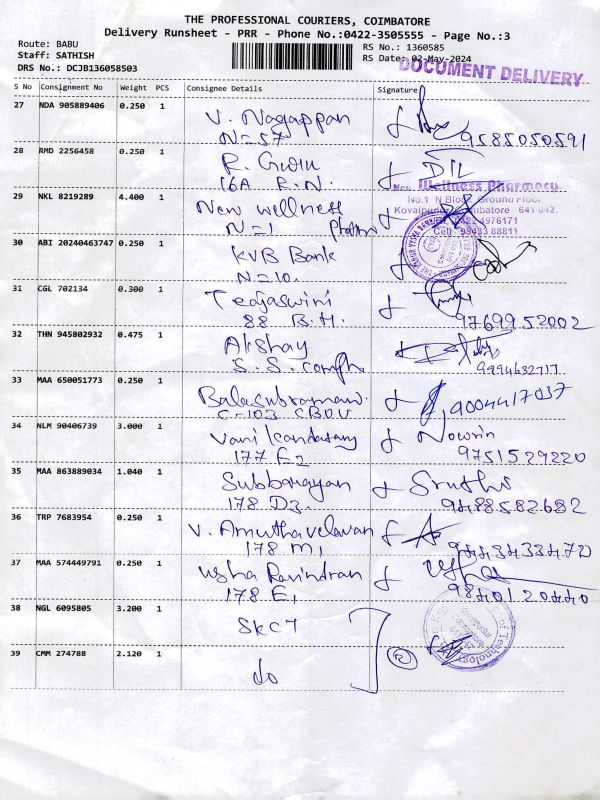 THE PROFESSIONAL COURIERS, COIMBATORE
Delivery Runsheet - PRR - Phone No.:0422-3505555 - Page No.:3
Route: BABU
Staff: SATHISH
DRS No.: DCJB136058503
RS No.: 1360585
RS Date: 02-May-2024
DOCUMENT DELIVERY
S No Consignment No Weight PCS Consignee Details Signature
27 NDA 905889406 0.250 1
V. Nagappan
N=57
9585050591
28 RMD 2256458 0.250 1
16A R.N.
29 NKL 8219289 4.400 1
New wellness
N=1
New Wellness Pharmacy
No.1 N Block, Ground Floor
Kovaipudur, Coimbatore 641 042.
Cell 98433 88811
30 ABI 20240463747 0.250 1
KVB Bank
N=10.
31 CGL 702134 0.300 1
Tejaswini
88 B.H.
9769952002
32 THN 945802932 0.475 1
Akshay
S.S.
9994632717
33 MAA 650051773 0.250 1
Balasubramani
C-103 CBOU
9004417037
34 NLM 90406739 3.000 1
Vani Kandasamy
177 E2
Nowrin
9751529220
35 MAA 863889034 1.040 1
Subbarayan
178 D3.
Sruthi
9488582682
36 TRP 7683954 0.250 1
V. Amuthavelavan
178 M1
9443433472
37 MAA 574449791 0.250 1
Usha Ravindran
178 E1
Usha
9840120440
38 NGL 6095805 3.200 1
SKCT
39 CMM 274788 2.120 1
do